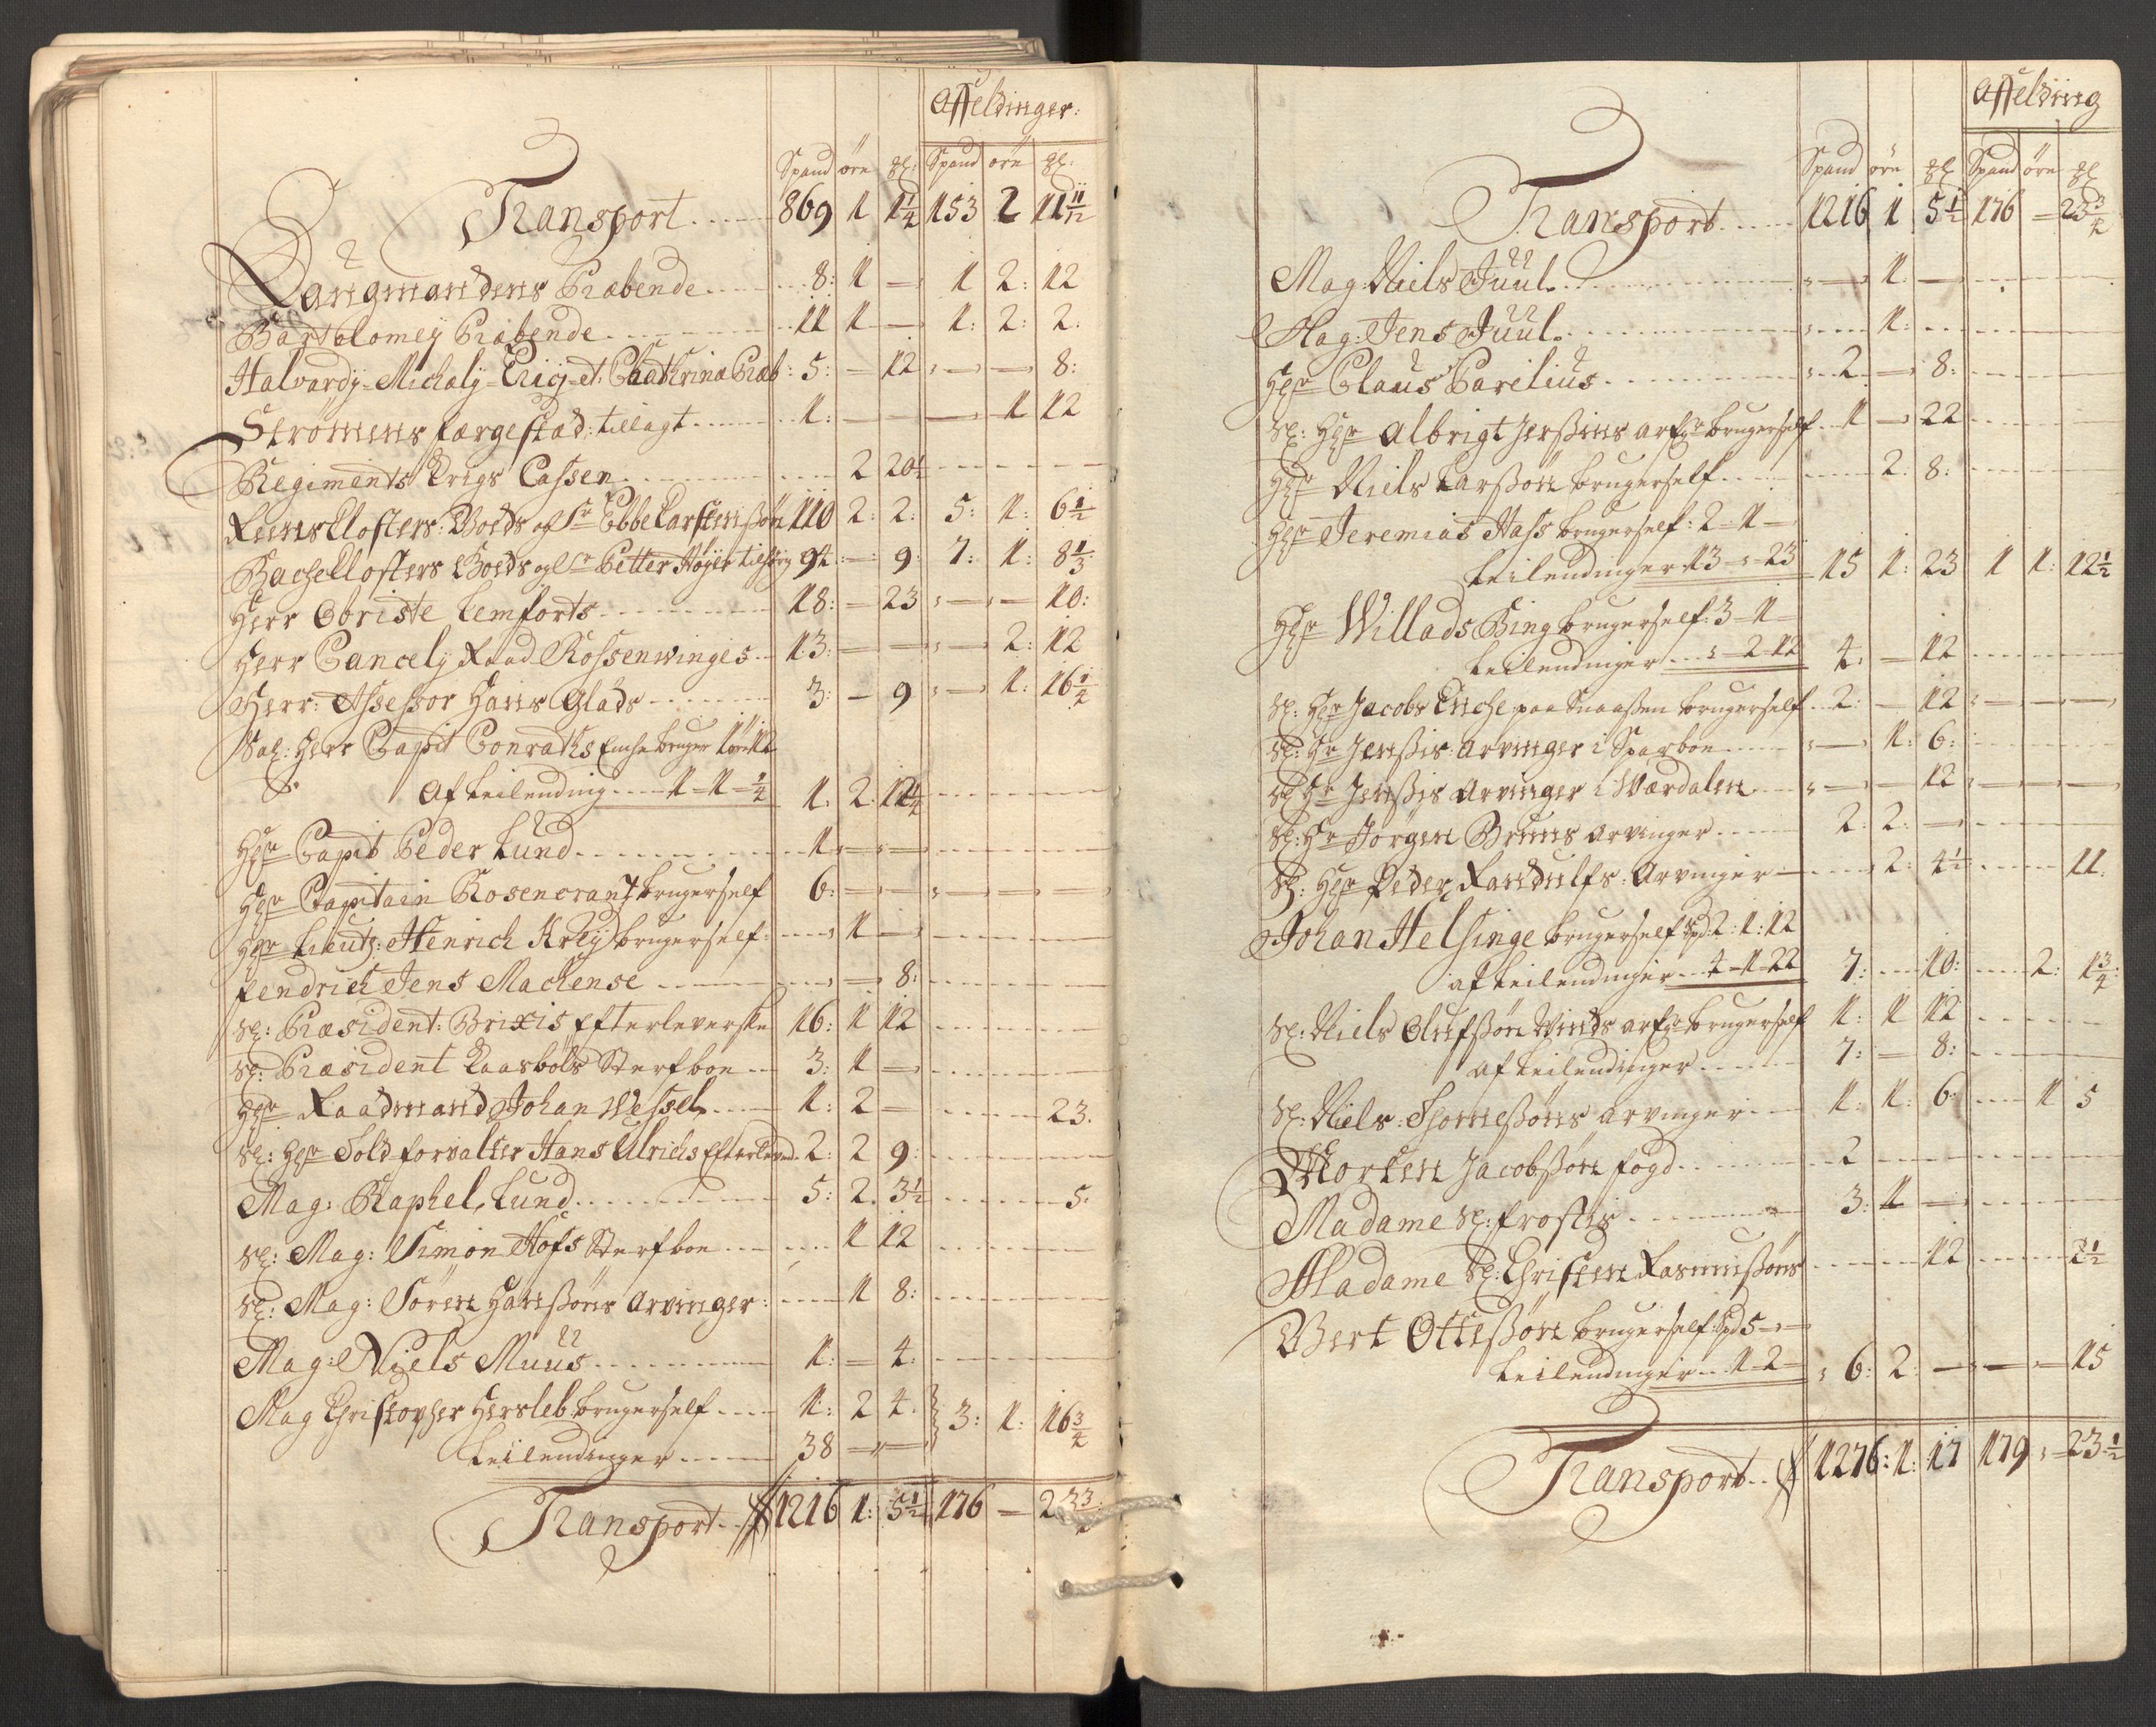 Affeldinger:
Spand öre gl: Spand öre gl:
Transport ..... 869 1 1 1/4 153 2 11 11/12
Langmandens Præbende ..... 8: 1 — 1 2: 12
Bartolomey Præbende ..... 11 1 — 1: 2: 2:
Halvardy-Michaely-Ericj-et: Chathrinæ Præb: 5: — 12 — — 8:
Strömens færgestad: tillagt ..... 1: — — — 1 12
Regiments Krigs Cassen ..... 2 20 1/2
Reins Closters: Goeds og Sr Ebbe Carstensßön 110 2: 2: 5: 1: 6 1/2
Bache Closters Goeds og Sr Petter Höyer tilhörig 94 — 9: 7: 1: 8 1/3
Herr Obriste Lemforts ..... 18: — 23 — — 10:
Herr Cancely Raad Rossenvinges .. 13: — — — 2: 12
Herr: Assessor Hans Glads ..... 3: — 9 — 1: 16 1/2
Sal: Herr Capit Conraths Enche bruger 1 öre 12
Af Leilending .... 1 – 1 – 1/4 1. 2. 12 1/4
Hr Capit Peder Lund ..... 1 — —
Hr Capitain Rosencrantz brugerself 6: — — — — —
Hr Lieutt: Henrich Krey brugerself: ..... 1 —
fendrich Jens Machense ..... — 8:
Sl: Præsident: Brixis Efterleverske 16: 1 12
Sl: Præsident Kaasbols Sterfboe ... 3: 1 —
Hr Raadmand Johan Wessel ..... 1: 2 — ..... 23.
Sl: Hr Told-forvalter Hans Ulrichs Efterleved. 2: 2 9:
Mag: Raphel, Lund ..... 5: 2. 3 1/2 ..... 5.
Sl: Mag: Simon Hofs Sterfboe ..... 1 12
Sl: Mag: Sören Hansßöns Arvinger: ..... 1 8:
Mag: Niels Muus ..... 1: — 4:
Mag Christopher Hersleb brugerself .... 1: 2 4. 3: 1: 16 3/4
Leilendinger ..... 38 — —
Transport .. 1216 1: 5 1/2 176 — 23 3/4
Affelding
Spand öre gl Spand öre gl
Transport ..... 1216 1 5 1/2 176 — 23 3/4
Mag: Niels Juul ..... — 1: —
Mag: Jens Juul ..... 1:
Hr Claus Parelius ..... 2 — 8:
Sl: Hr Albrigt Jersßins arfr brugerself .. 1 — 22
Hr Niels Larsßön brugerself ..... 2: 8:
Hr Jeremias Hass brugerself: 2 – 1 —
Leilendinger 13 – „ – 23 15 1: 23 1 1: 12 1/2
Hr Willads Bing brugerself: 3 – 1 —
Leilendinger ... „ – 2 – 12 4: — 12
Sl: Hr Jacobs Enche paa Snaaßen brugerself .. 2: — 12 — — —
Sl: Hr Jensßis: Arvinger i Sparboe ..... — 1: 6:
Sl Hr Jensßis Arvinger i Værdalen ..... — — 12 — — —
Sl: Hr Jörgen Bruns arvinger ..... 2: 2: —
Sl: Hr Peder Randulfs: Arvinger ..... 2: 4 1/2 ..... 11.
Johan Helsinge brugerself Spd 2: 1: 12
af Leilendinger .. 4 – 1 – 22 7: .... 10: .... 2: 1 3/4:
Sl: Niels Olufsßön Winds arfr brugerself 1: 1 12
af Leilendinger ..... 7: — 8:
Sl: Niels Thomesßöns arvinger ... 1: 1: 6: .... 1 5
Morten Jacobsßön fogd ..... 2
Madame Sl: frostis ..... 3: 1 —
Madame Sl: Christen Rasmusßöns ..... 12 ..... 2 1/2
Gert Ottesßön brugerself: Spd 5 – „ —
Leilendinger ... 1 – 2 — 6: 2: — — — 15
Transport .. 1276: 1: 17 179 „ — 23 1/2